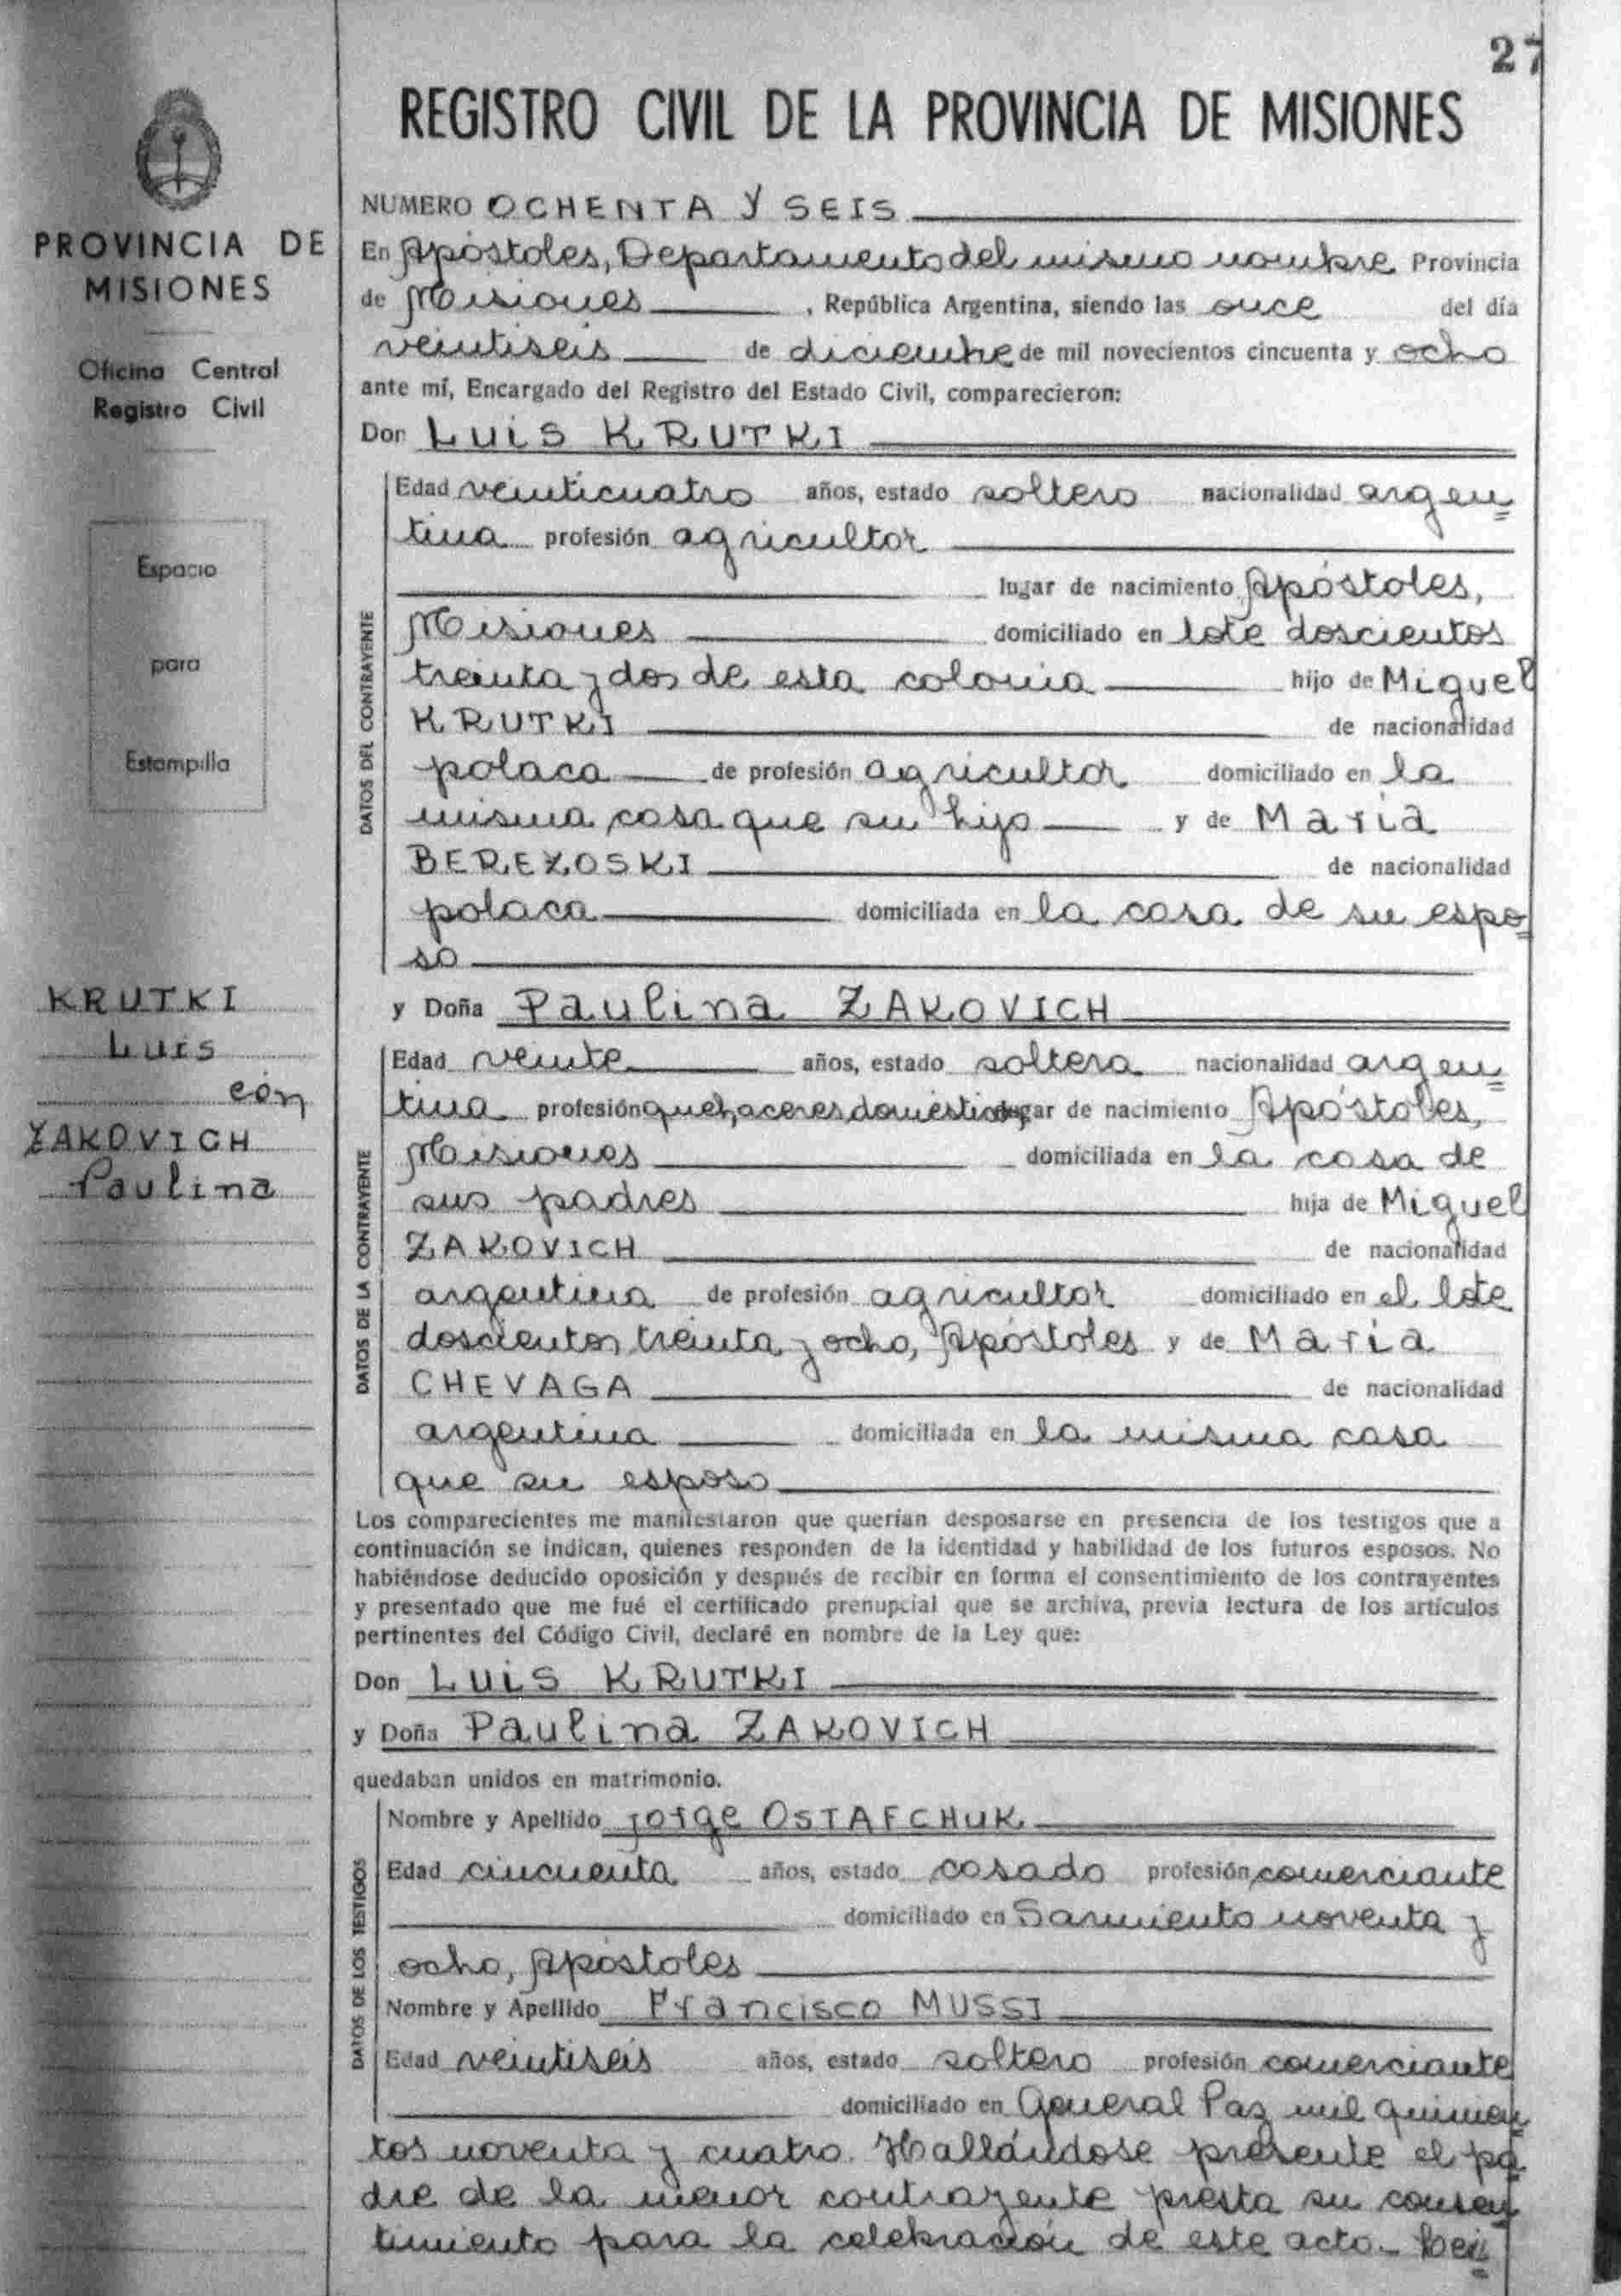 27
REGISTRO CIVIL DE LA PROVINCIA DE MISIONES
PROVINCIA DE
MISIONES
Oficina Central
Registro Civil
Espacio
para
Estampilla
KRUTKI
Luis
con
ZAKOVICH
Paulina
NUMERO OCHENTA Y SEIS
En Apóstoles, Departamento del mismo nombre Provincia
de Misiones, República Argentina, siendo las once del día
veintiseis de diciembre de mil novecientos cincuenta y ocho
ante mí, Encargado del Registro del Estado Civil, comparecieron:
Don LUIS KRUTKI
DATOS DEL CONTRAYENTE
Edad veinticuatro años, estado soltero nacionalidad argen=
tina profesión agricultor
lugar de nacimiento Apóstoles,
Misiones domiciliado en lote doscientos
treinta y dos de esta colonia hijo de Miguel
KRUTKI de nacionalidad
polaca de profesión agricultor domiciliado en la
misma casa que su hijo y de María
BEREZOSKI de nacionalidad
polaca domiciliada en la casa de su espo=
so
y Doña Paulina ZAKOVICH
DATOS DE LA CONTRAYENTE
Edad veinte años, estado soltera nacionalidad argen=
tina profesión quehaceres domésticos lugar de nacimiento Apóstoles,
Misiones domiciliada en la casa de
sus padres hija de Miguel
ZAKOVICH de nacionalidad
argentina de profesión agricultor domiciliado en el lote
doscientos treinta y ocho, Apóstoles y de María
CHEVAGA de nacionalidad
argentina domiciliada en la misma casa
que su esposo
Los comparecientes me manifestaron que querían desposarse en presencia de los testigos que a
continuación se indican, quienes responden de la identidad y habilidad de los futuros esposos. No
habiéndose deducido oposición y después de recibir en forma el consentimiento de los contrayentes
y presentado que me fué el certificado prenupcial que se archiva, previa lectura de los artículos
pertinentes del Código Civil, declaré en nombre de la Ley que:
Don LUIS KRUTKI
y Doña Paulina ZAKOVICH
quedaban unidos en matrimonio.
DATOS DE LOS TESTIGOS
Nombre y Apellido Jorge OSTAFCHUK
Edad cincuenta años, estado casado profesión comerciante
domiciliado en Sarmiento noventa y
ocho, Apóstoles
Nombre y Apellido Francisco MUSSI
Edad veintiseis años, estado soltero profesión comerciante
domiciliado en General Paz mil quinien
tos noventa y cuatro. Hallándose presente el pa
dre de la menor contrayente presta su consen
timiento para la celebración de este acto.- Leí=